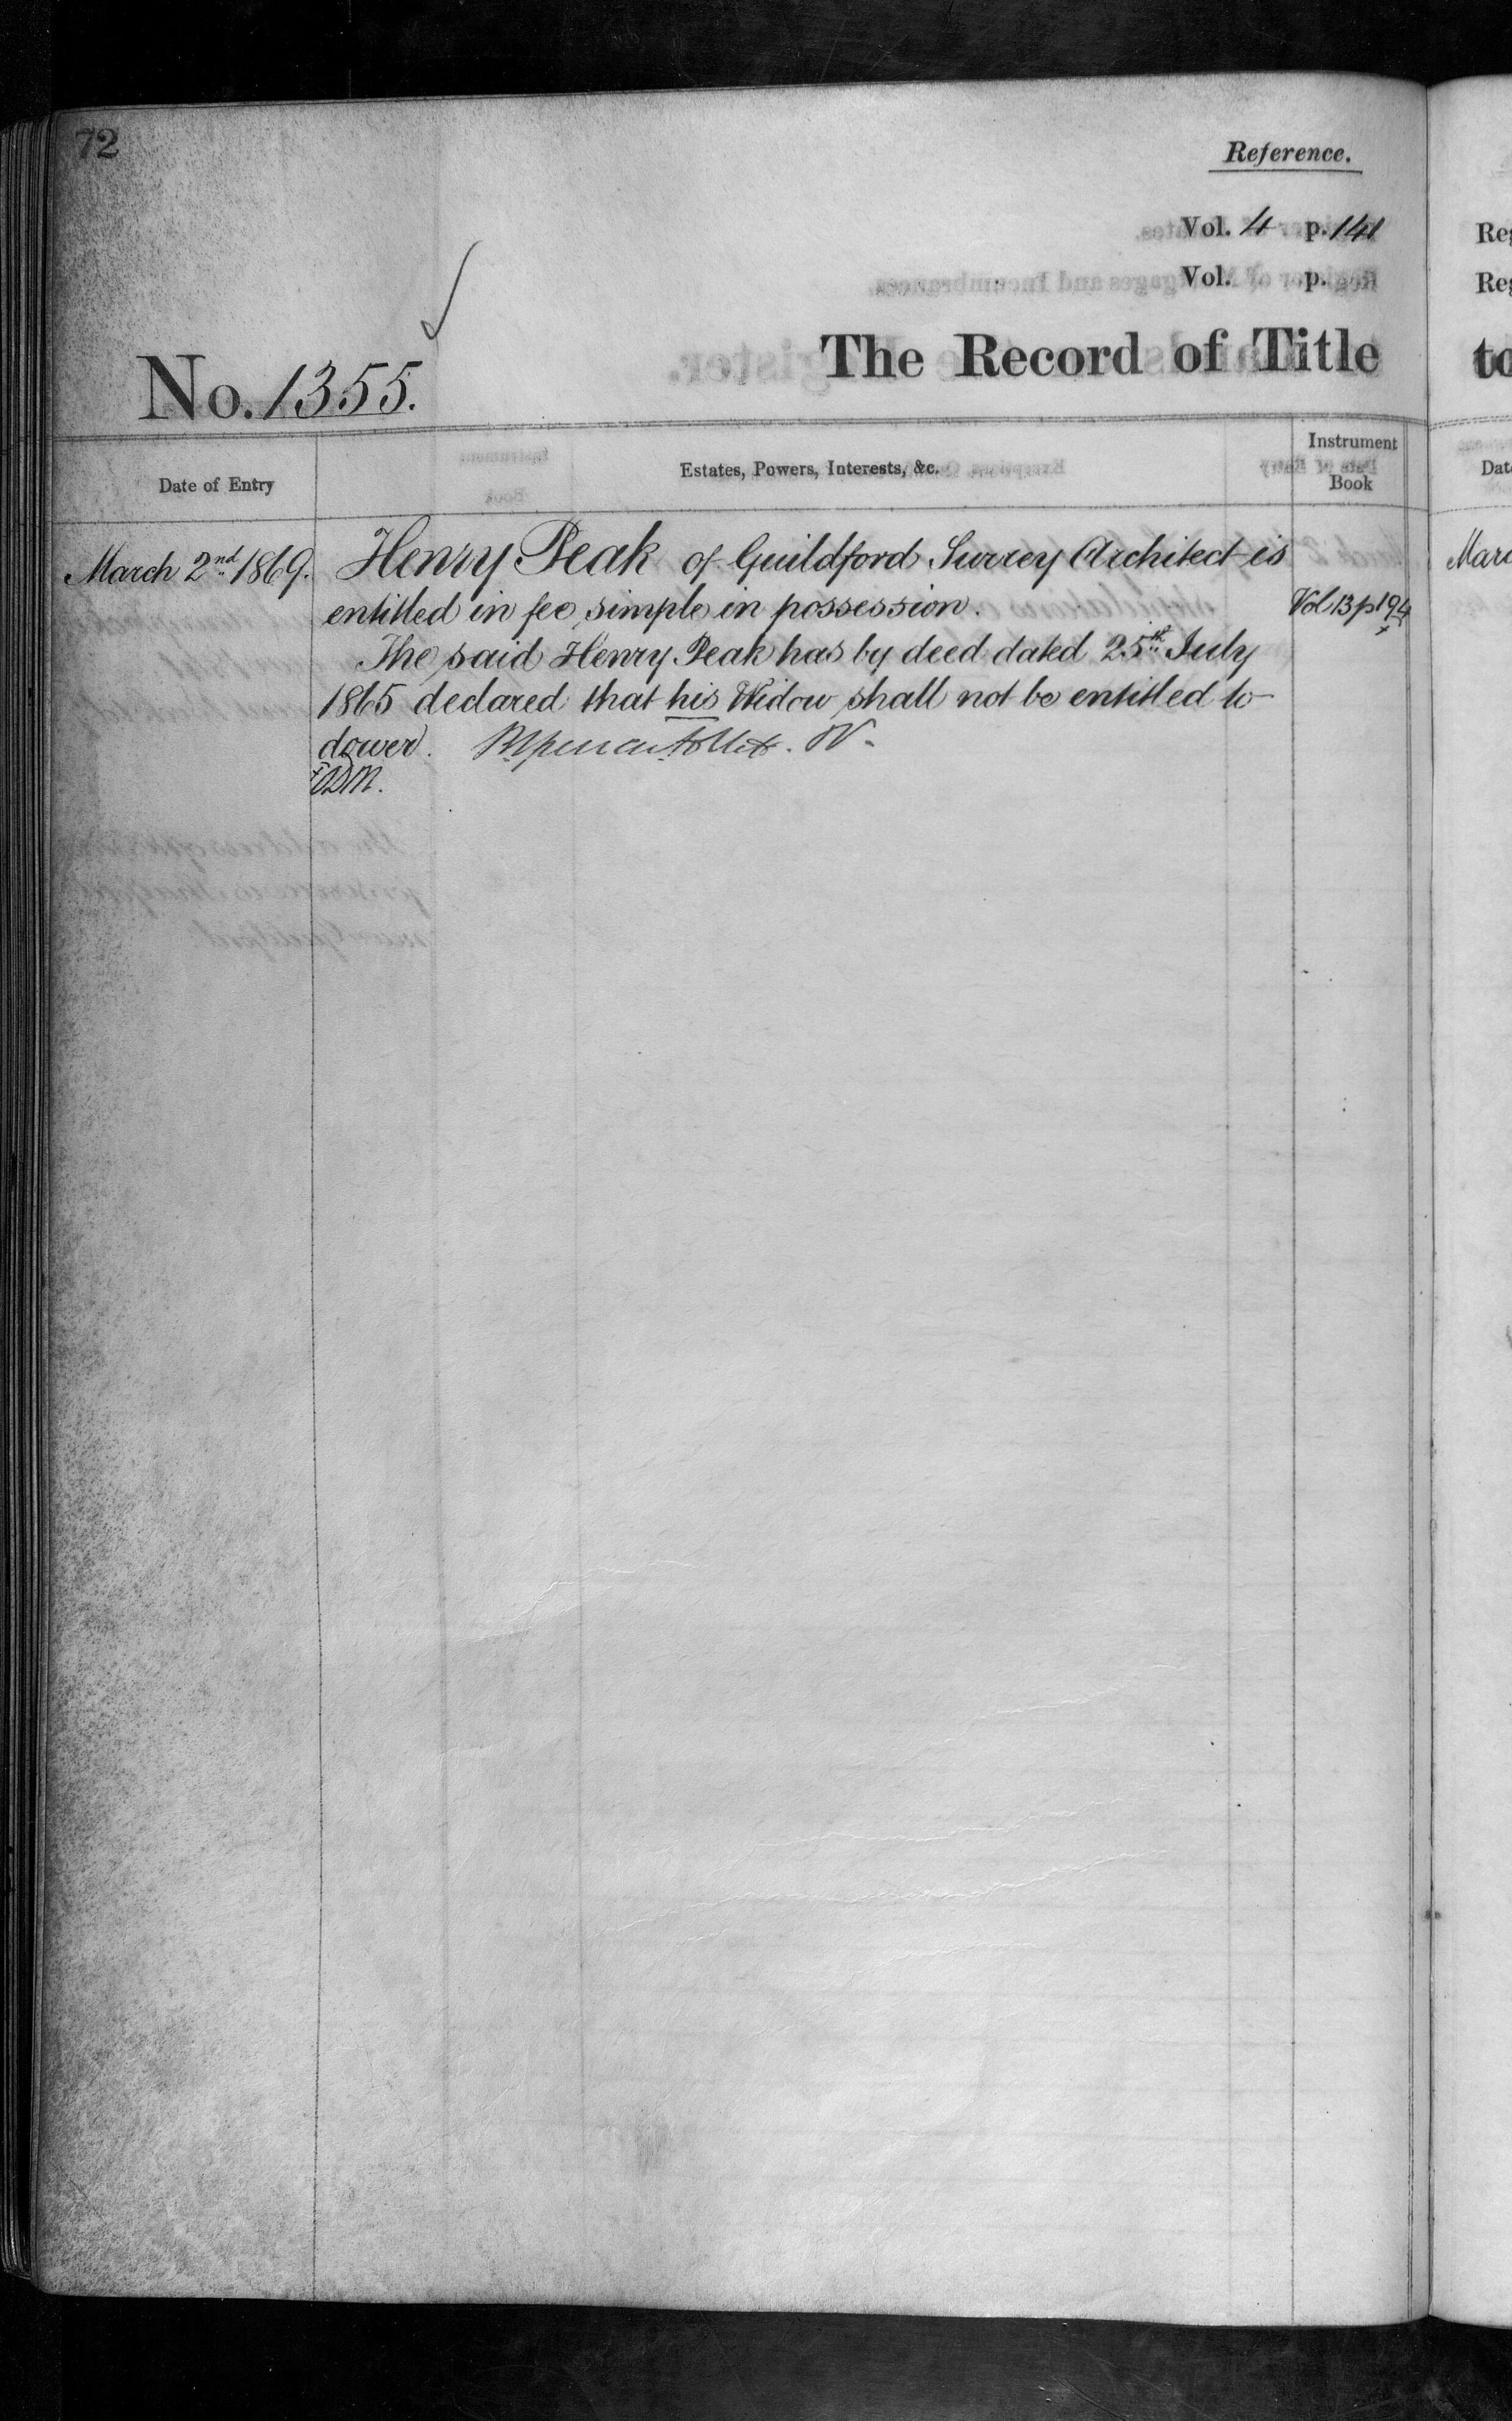 72
Reference.
Vol. 4 p. 141
Vol. p.
No. 1355.
The Record of Title
Date of Entry
Estates, Powers, Interests, &c.
Instrument
Book
March 2nd 1869.
Henry Peak of Guildford Surrey Architect is
entitled in fee simple in possession.
Vol 13 p 194
The said Henry Peak has by deed dated 25th July
1865 declared that his Widow shall not be entitled to
dower.
Reg
Reg
to
Date
Marc